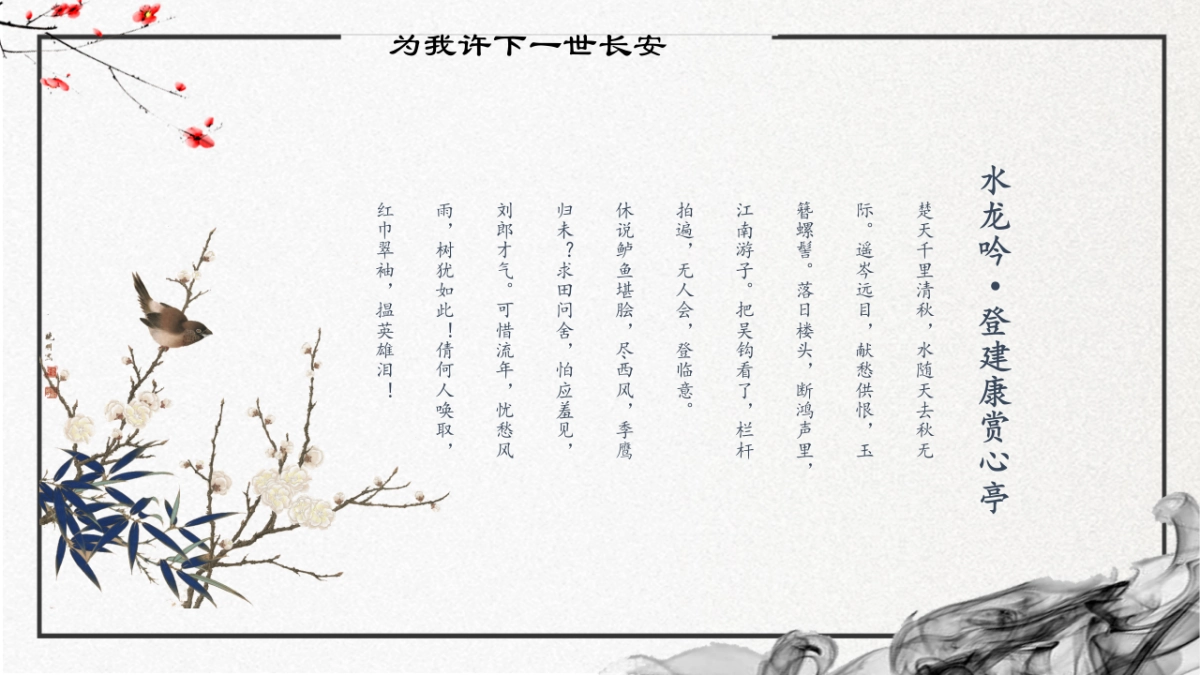 为我许下一世长安
水龙吟·登建康赏心亭
楚天千里清秋，水随天去秋无
际。遥岑远目，献愁供恨，玉
簪螺髻。落日楼头，断鸿声里，
江南游子。把吴钩看了，栏杆
拍遍，无人会，登临意。
休说鲈鱼堪脍，尽西风，季鹰
归未？求田问舍，怕应羞见，
刘郎才气。可惜流年，忧愁风
雨，树犹如此！倩何人唤取，
红巾翠袖，揾英雄泪！